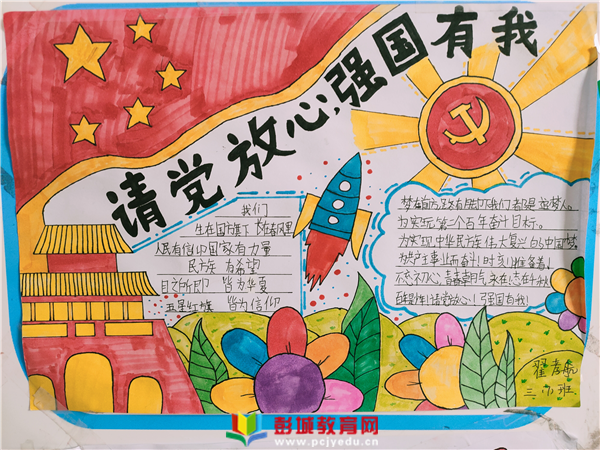 请党放心,强国有我
我们
生在国旗下 春风里
人民有信仰国家有力量
民族 有希望
目之所即 皆为华夏
五星红旗 皆为信仰
梦在前方,路在脚下,我们都是追梦人。
为实现第二个百年奋斗目标。
为实现中华民族伟大复兴的中国梦
为共产主义事业而奋斗!时刻准备着!
不忘初心,青春朝气永在志在千秋
请党放心!强国有我!
翟孝航
三 班
彭城教育网
www.pcjyedu.cn